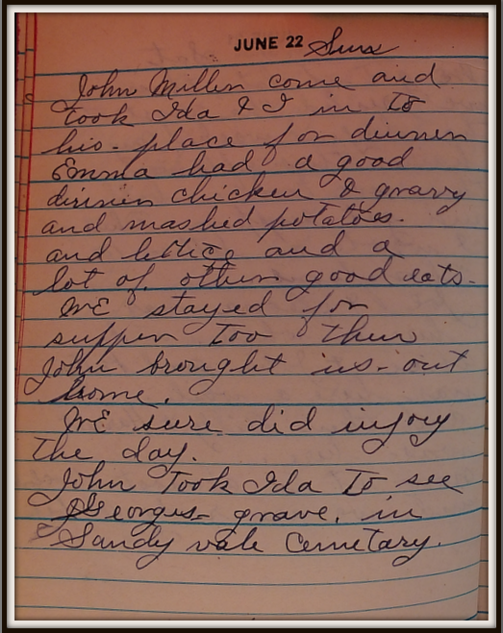 JUNE 22 Sun
John Miller come and
took Ida & I in to
his place for dinner
Emma had a good
dinner chicken & gravy
and mashed potatoes.
and lettice and a
lot of other good eats.
We stayed for
supper too then
John brought us out
home.
We sure did injoy
the day.
John took Ida to see
Georges grave. in
Sandy vale Cemetary.